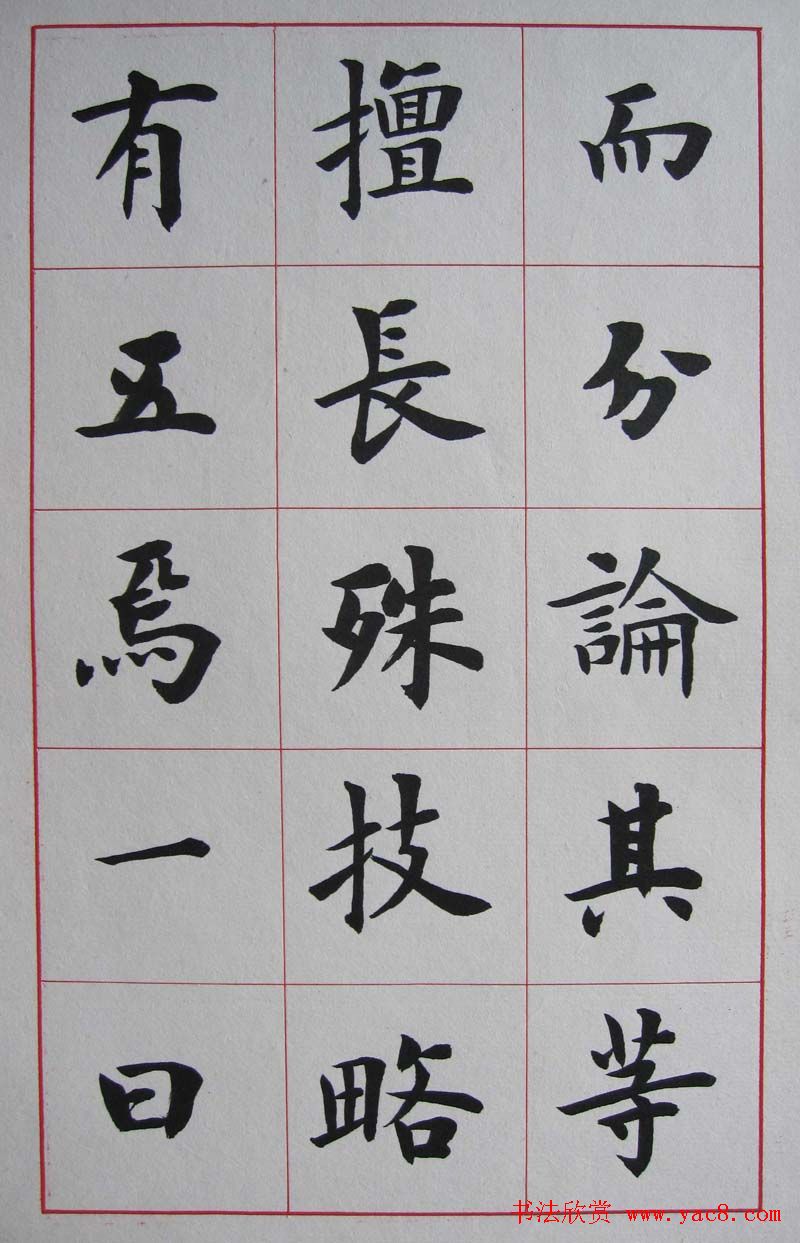 而分論其等
擅長殊技略
有五焉一曰
书法欣赏 www.yac8.com